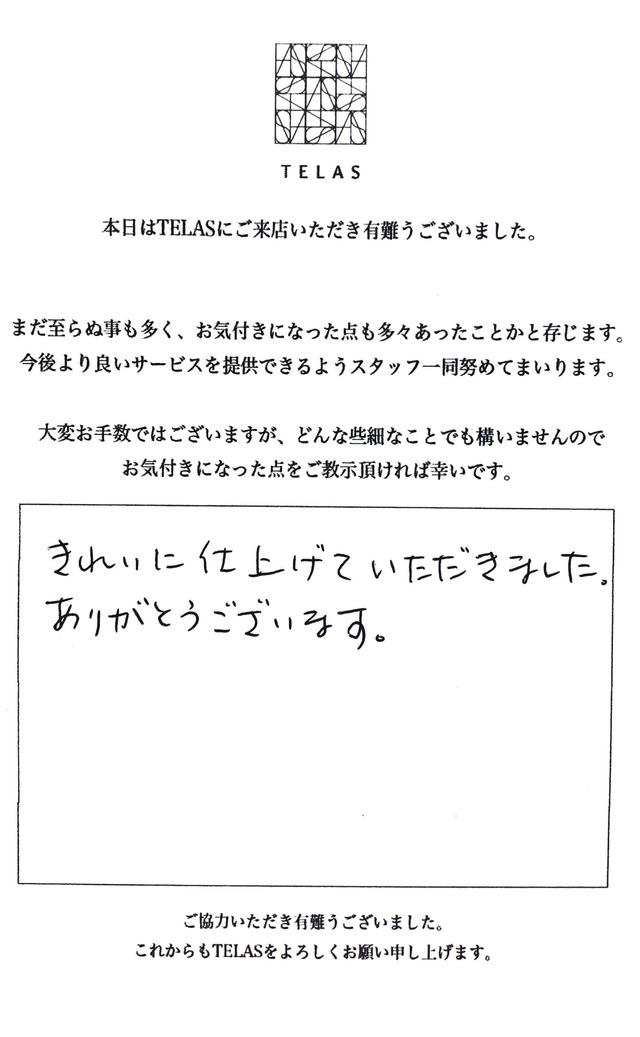 TELAS
本日はTELASにご来店いただき有難うございました。
まだ至らぬ事も多く、お気付きになった点も多々あったことかと存じます。
今後より良いサービスを提供できるようスタッフ一同努めてまいります。
大変お手数ではございますが、どんな些細なことでも構いませんので
お気付きになった点をご教示頂ければ幸いです。
きれいに仕上げていただきました。
ありがとうございます。
ご協力いただき有難うございました。
これからもTELASをよろしくお願い申し上げます。